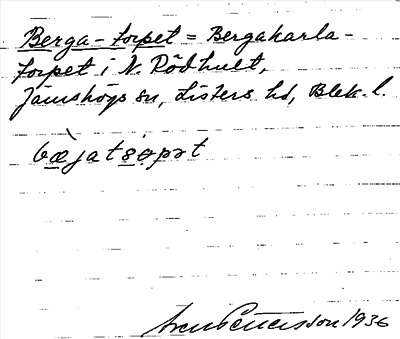 Berga-torpet = Bergakarla-
torpet i N. Rödhult,
Jämshögs sn, Listers hd, Blek. l.
Sven Pettersson 1936